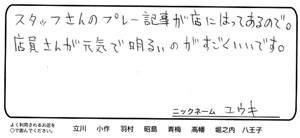 スタッフさんのプレー記事が店にはってあるので。
店員さんが元気で明るいのがすごくいいです。
ニックネーム ユウキ
よく利用されるお店を
○で囲んでください。 立川 小作 羽村 昭島 青梅 高幡 堀之内 八王子